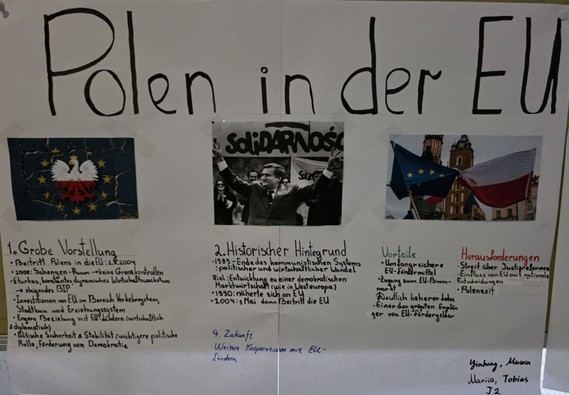 Polen in der EU
SOLIDARNOŚĆ
1. Grobe Vorstellung
• Beitritt Polens in die EU: 1.5.2004
→ keine Grenzkontrollen
→ steigendes BIP
• Investitionen von EU im Bereich Verkehrsystem,
Stadtbau und Erziehungssystem
• Engere Beziehung mit EU-Ländern (wirtschaftlich
& diplomatisch)
• Politische Sicherheit & Stabilität (wichtigere politische
Rolle, Förderung von Demokratie
2. Historischer Hintergrund
• 1989: Ende des kommunistischen Systems
: politischer und wirtschaftlicher Wandel
Ziel: Entwicklung zu einer demokratischen
Marktwirtschaft (wie in Westeuropa)
• 1990: näherte sich an EU
• 2004: 1 Mai dann Beitritt die EU
Vorteile
• Umfangreichere
EU-Fördermittel
• Zugang zum EU-Binnen-
markt
• Deutlich höherer Lohn
• Einer der grössten Empfän
ger von EU-Fördergelder
Herausforderungen
Streit über Justizreformen
Einfluss von EU auf nationale
Entscheidungen
4. Zukunft
Weitere Kooperationen mit EU-
Ländern
Mariia, Tobias
J2